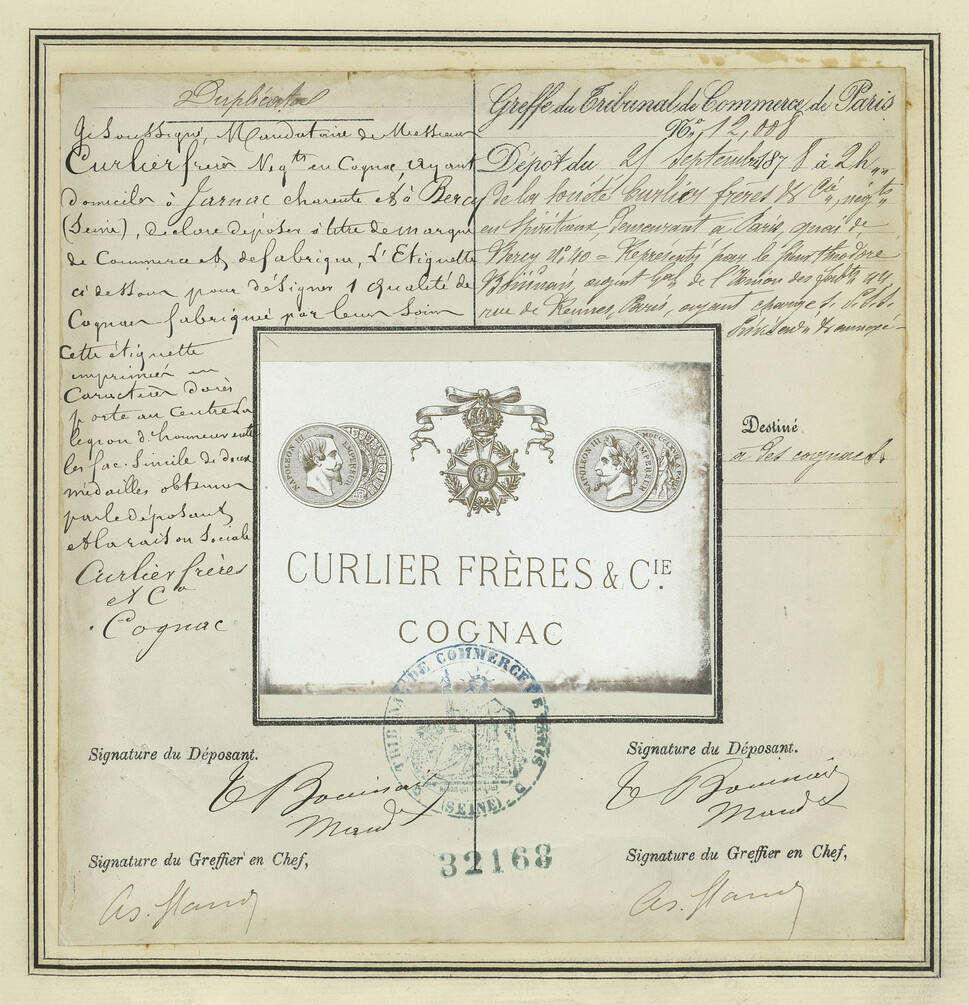 Duplicata
Je Soussigné, Mandataire de Messieurs
Curlier frères Negts en Cognac, ayant
domicile à Jarnac charente et à Bercy
(Seine), declare déposer à titre de marque
de Commerce et de fabrique, L'Etiquette
ci dessous pour désigner 1 qualité de
Cognac fabriquée par leurs Soins
Cette étiquette
imprimée en
Caractères dorés
porte au centre La
légion d'honneur entre
les fac. Simile de deux
médailles obtenues
par le déposant
et la raison Sociale
Curlier frères
et Co
Cognac
Greffe du Tribunal de Commerce de Paris
No. 12,008
Dépôt du 21 septembre 1878 à 2h
de la Société Curlier frères & Cie, négts
en Spiritueux, demeurant à Paris, quai de
Bercy no. 40 = Représentés par le sieur théodore
agent gal de l'Union des fabts 44
rue de Rennes, Paris, ayant charge
Destiné
à des cognacs.
NAPOLEON III EMPEREUR
NAPOLEON III EMPEREUR
CURLIER FRÈRES & CIE.
COGNAC
TRIBUNAL DE COMMERCE DE PARIS
(SEINE)
Signature du Déposant.
Mand
Signature du Greffier en Chef,
32168
Signature du Déposant.
Mand
Signature du Greffier en Chef,